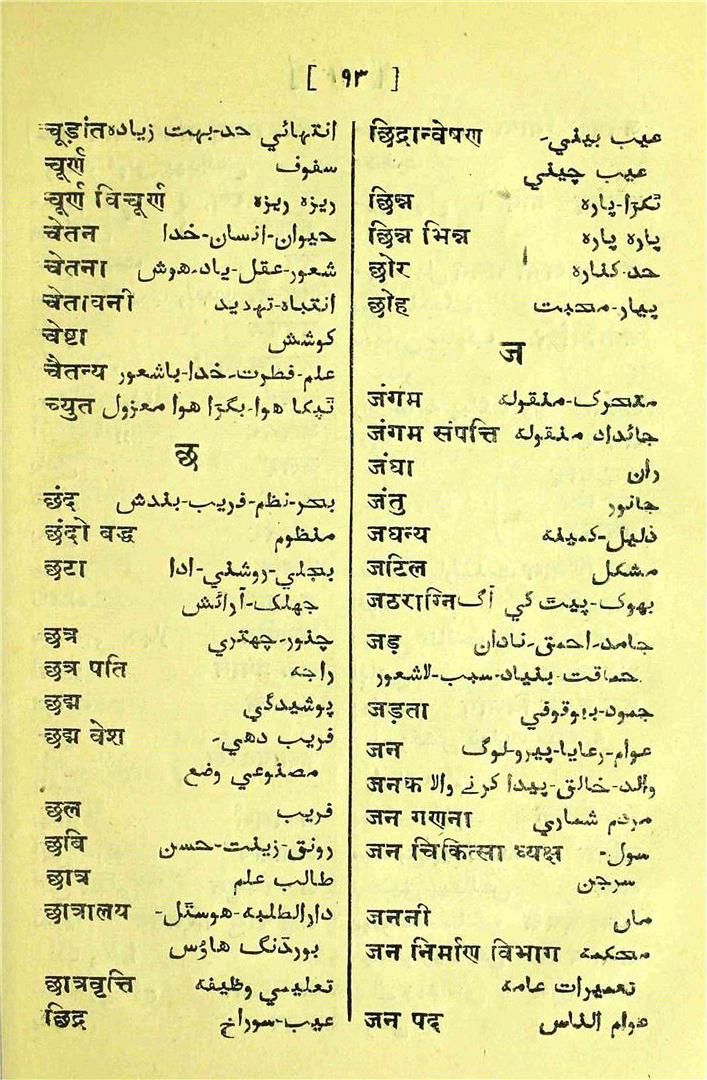 [ ۹۳ ]
चूड़ांत انتهائي حد-بهت زیاده
चूर्ण سفوف
चूर्ण विचूर्ण ریزه ریزه
चेतन حیوان-انسان-خدا
चेतना شعور-عقل-یاد-هوش
चेतावनी انتباه-تهدید
चेष्टा کوشش
चैतन्य علم-فطرت-خدا-باشعور
च्युत ٹپکا هوا-بگڑا هوا معزول
छ
छंद بحر-نظم-فریب-بندش
छंदो बद्ध منظوم
छटा بجلي-روشني-ادا
جهلک-آرائش
छत्र چنور-چهتري
छत्र पति راجه
छद्म پوشیدگي
छद्म वेश فریب دهي-
مصنوعي وضع
छल فریب
छवि رونق-زینت-حسن
छात्र طالب علم
छात्रालय دارالطلبه-هوسٹل-
بورڈنگ هاؤس
छात्रवृत्ति تعلیمي وظیفه
छिद्र عیب-سوراخ
छिद्रान्वेषण عیب بیني-
عیب چیني
छिन्न ٹکڑا-پاره
छिन्न भिन्न پاره پاره
छोर حد-کناره
छोह پیار-محبت
ज
जंगम متحرک-منقوله
जंगम संपत्ति جائداد منقوله
जंघा ران
जंतु جانور
जघन्य ذلیل-کمینه
जटिल مشکل
जठराग्नि بهوک-پیٹ کي آگ
जड़ جامد-احمق-نادان
حماقت-بنیاد-سبب-لاشعور
जड़ता جمود-بیوقوفي
जन عوام-رعایا-پیرو-لوگ
जनक والد-خالق-پیدا کرنے والا
जन गणना مردم شماري
जन चिकित्सा ध्यक्ष سول-
سرجن
जननी ماں
जन निर्माण विभाग محکمه
تعمیرات عامه
जन पद عوام الناس